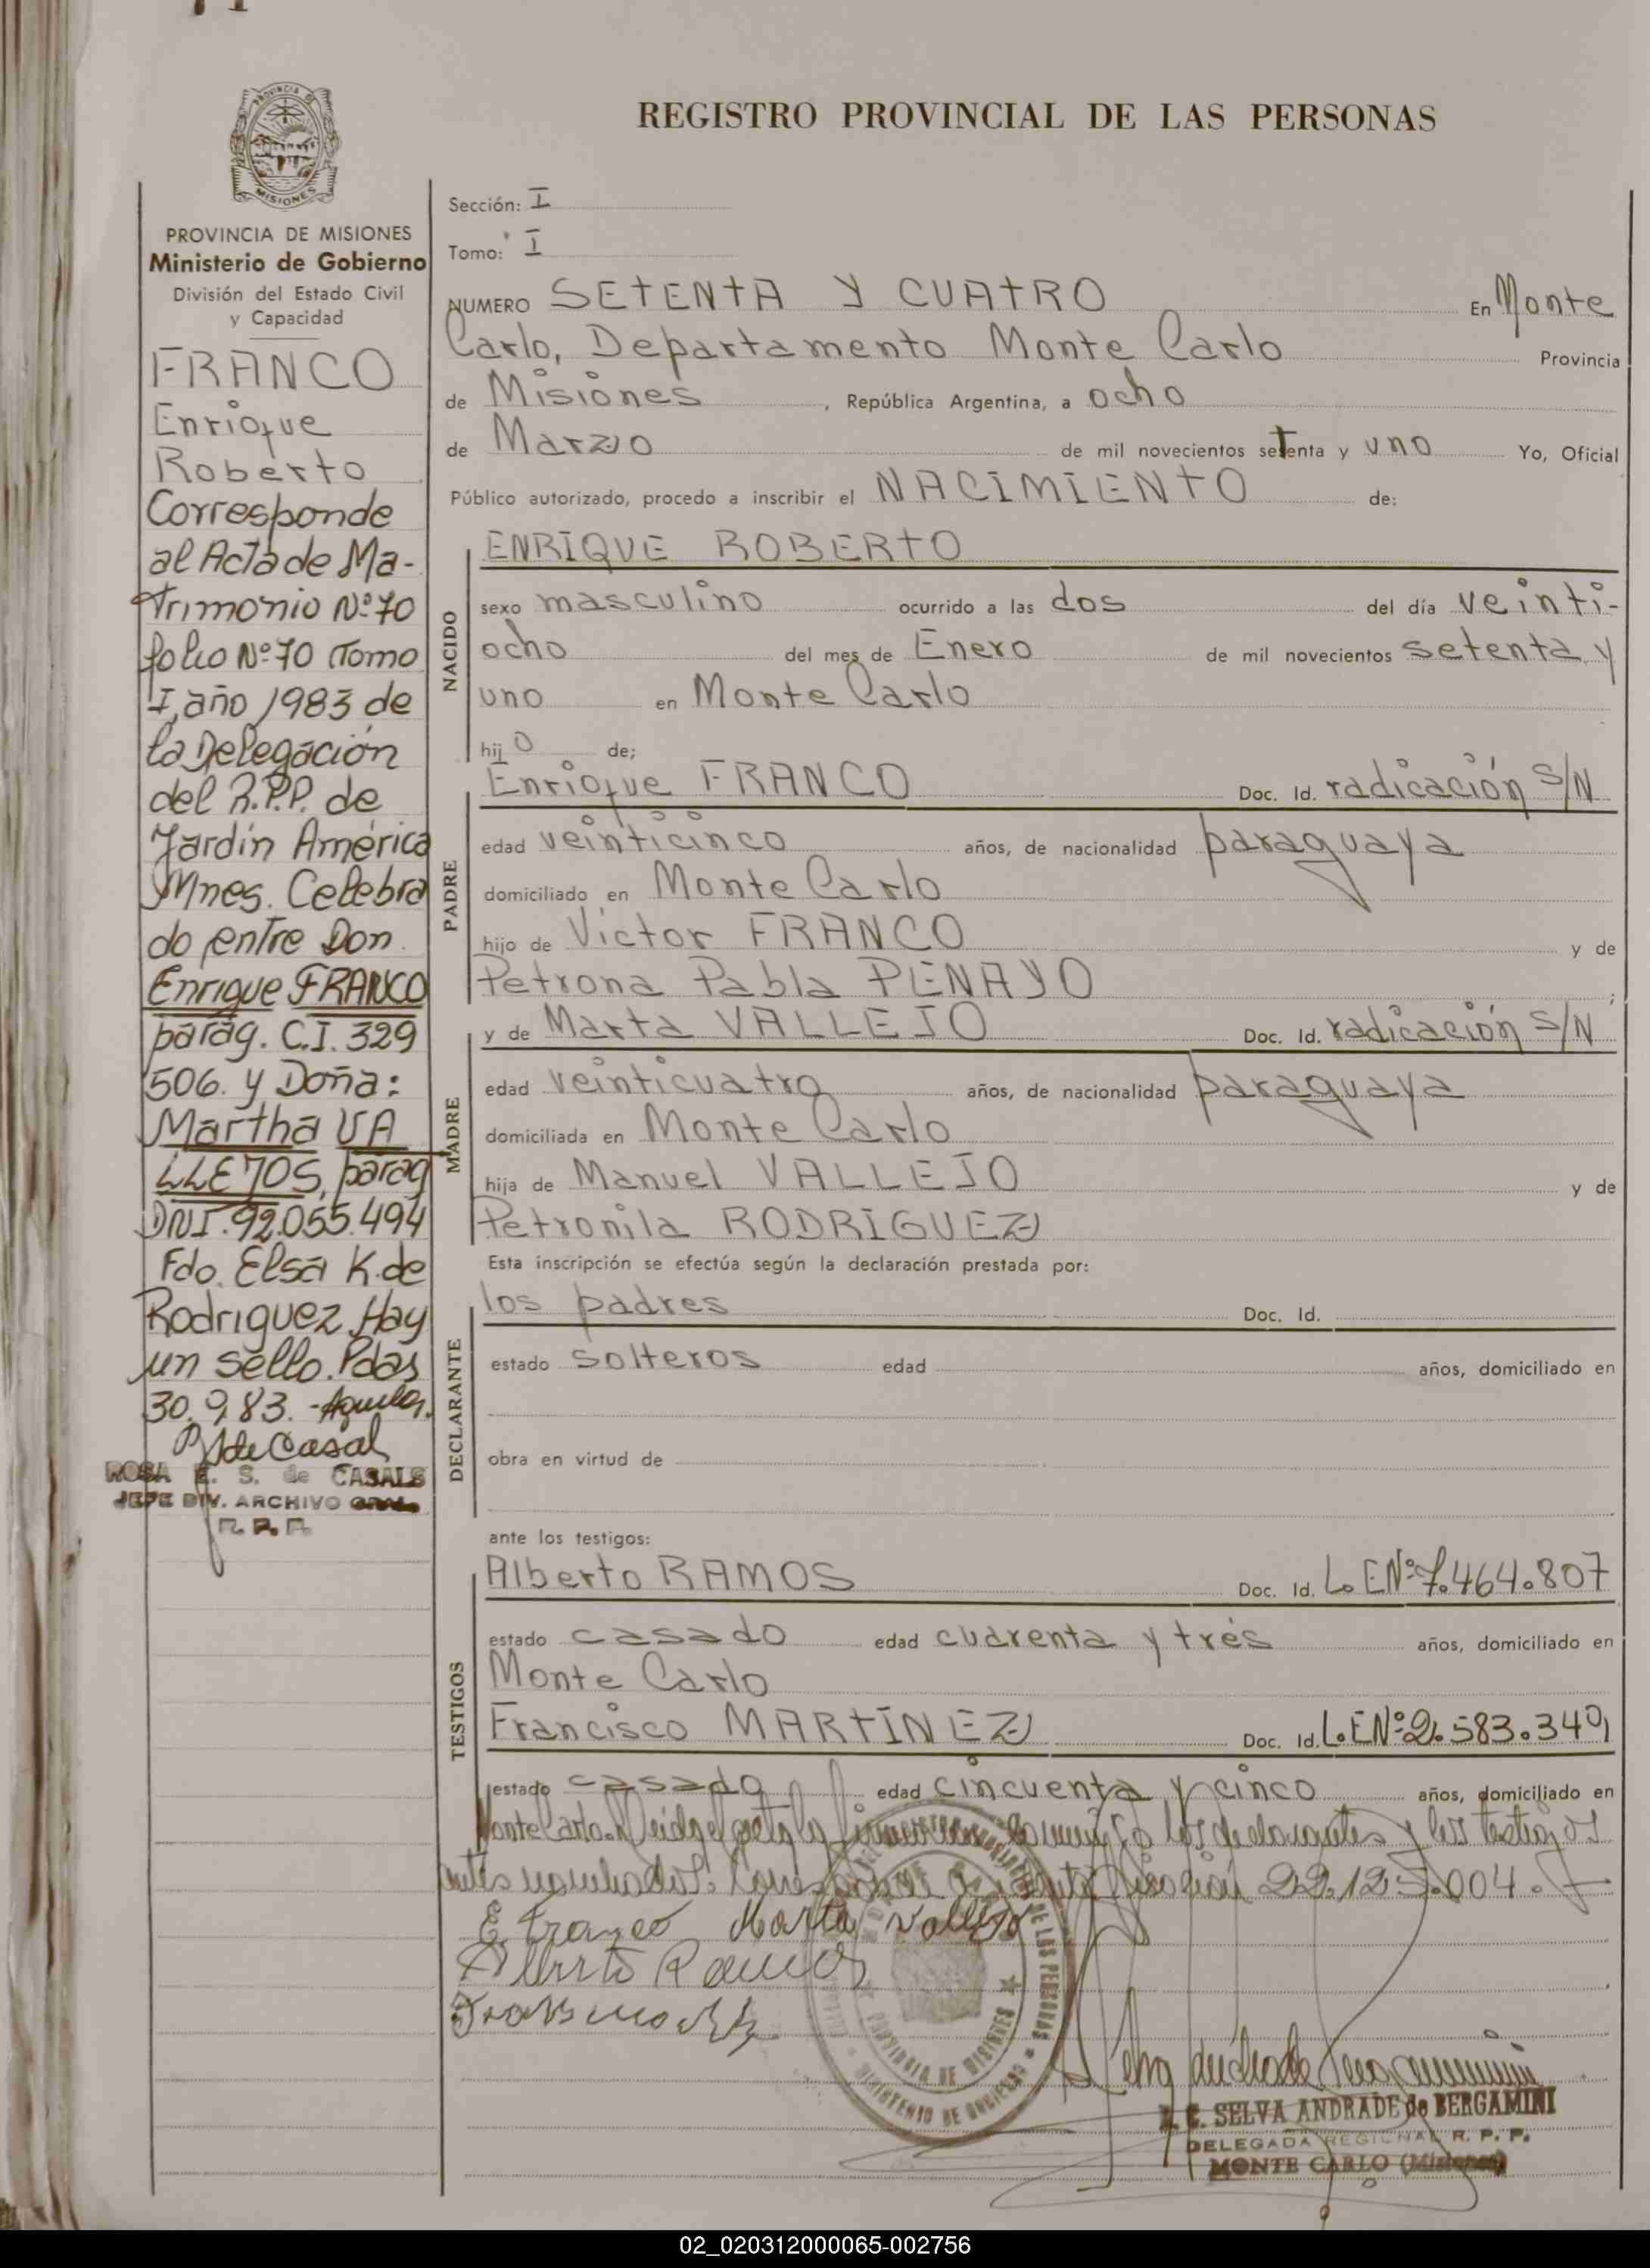 REGISTRO PROVINCIAL DE LAS PERSONAS
PROVINCIA DE MISIONES
Ministerio de Gobierno
División del Estado Civil
y Capacidad
FRANCO
Enrique
Roberto
Corresponde
al Acta de Ma-
trimonio Nº 70
folio Nº 70 Tomo
I, año 1983 de
la Delegación
del R.P.P. de
Jardín América
Mnes. Celebra
do entre Don
Enrique FRANCO
parag. C.I. 329
506. y Doña:
Martha VA
LLEJOS, parag
DNI. 92.055.494
Fdo. Elsa K. de
Rodriguez Hay
un sello. Pdas
30.9.83.
ROSA E. S. de CASALS
JEFE DIV. ARCHIVO GRAL.
R. P. P.
Sección: I
Tomo: I
NUMERO SETENTA Y CUATRO En Monte
Carlo, Departamento Monte Carlo Provincia
de Misiones, República Argentina, a ocho
de Marzo de mil novecientos setenta y uno Yo, Oficial
Público autorizado, procedo a inscribir el NACIMIENTO de:
NACIDO
ENRIQUE ROBERTO
sexo masculino ocurrido a las dos del día veinti-
ocho del mes de Enero de mil novecientos setenta y
uno en Monte Carlo
hijo de;
PADRE
Enrique FRANCO Doc. Id. radicación S/N
edad veinticinco años, de nacionalidad paraguaya
domiciliado en Monte Carlo
hijo de Victor FRANCO y de
Petrona Pabla PENAYO;
MADRE
y de Marta VALLEJO Doc. Id. radicación S/N
edad veinticuatro años, de nacionalidad paraguaya
domiciliada en Monte Carlo
hija de Manuel VALLEJO y de
Petronila RODRIGUEZ
Esta inscripción se efectúa según la declaración prestada por:
DECLARANTE
los padres Doc. Id.
estado solteros edad años, domiciliado en
obra en virtud de
ante los testigos:
TESTIGOS
Alberto RAMOS Doc. Id. L. E Nº 7.464.807
estado casado edad cuarenta y trés años, domiciliado en
Monte Carlo
Francisco MARTÍNEZ Doc. Id. L. E Nº 2.583.340
estado casado edad cincuenta y cinco años, domiciliado en
Monte Carlo. los declarantes y los testigos
antes 22.123.004.
E Franco Marta Vallejo
Alberto Ramos
SELVA ANDRADE de BERGAMINI
DELEGADA REGIONAL R. P. P.
MONTE CARLO (Misiones)
02_020312000065-002756